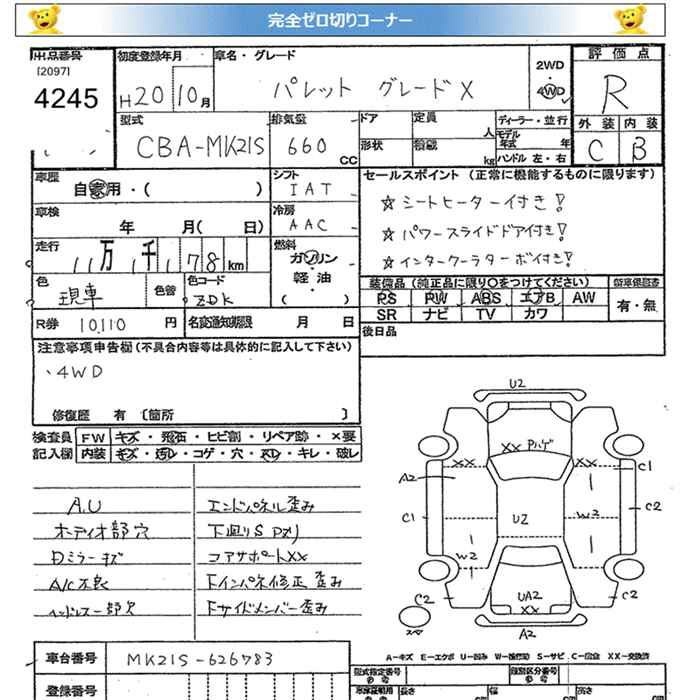 完全ゼロ切りコーナー
出品番号 初度登録年月 車名・グレード 評価点
[2097]
4245
H20 10月 パレット グレードX 2WD
4WD
R
外装 内装
C B
型式 排気量 ドア 定員 人 ディーラー・並行
CBA-MK21S 660 CC 形状 積載 kg モデル年式 年
ハンドル 左・右
車歴 シフト セールスポイント (正常に機能するものに限ります)
自家用・( ) IAT
☆シートヒーター付き!
車検 冷房
年 月( 日) AAC
☆パワースライドドア付き!
走行 燃料
11万 1千 178 km ガソリン・軽油・( )
☆インタークーラーターボ付き!
色 色替 色コード 装備品 (純正品に限り○をつけてください) 新車保証書
現車 ZDK PS PW ABS エアB AW 有・無
SR ナビ TV カワ
R券 10,110 円 名変通知期限 月 日 後日品
注意事項申告欄 (不具合内容等は具体的に記入して下さい)
、4WD
修復歴 有 [箇所 ]
検査員 FW キズ・飛石・ヒビ割・リペア跡・×要
記入欄 内装 キズ・汚レ・コゲ・穴・スレ・キレ・破レ
A.U エンドパネル歪み
オーディオ部穴 下廻りS
ミラーキズ コアサポートXX
A/C不良 Fインパネ修正歪み
Fサイドメンバー歪み
U2
XX Pハゲ
XX XX
A2 C1
C1 U2 W2 C2
W2
C2 UA2 C2
XX
スペア A2
A-キズ E-エクボ U-凹み W-補修跡 S-サビ C-腐食 XX-交換済
車台番号 MK21S-626783
型式指定番号 参考 類別区分番号 参考
登録番号 車庫証明用 参考 長さ cm 幅 cm 高さ cm